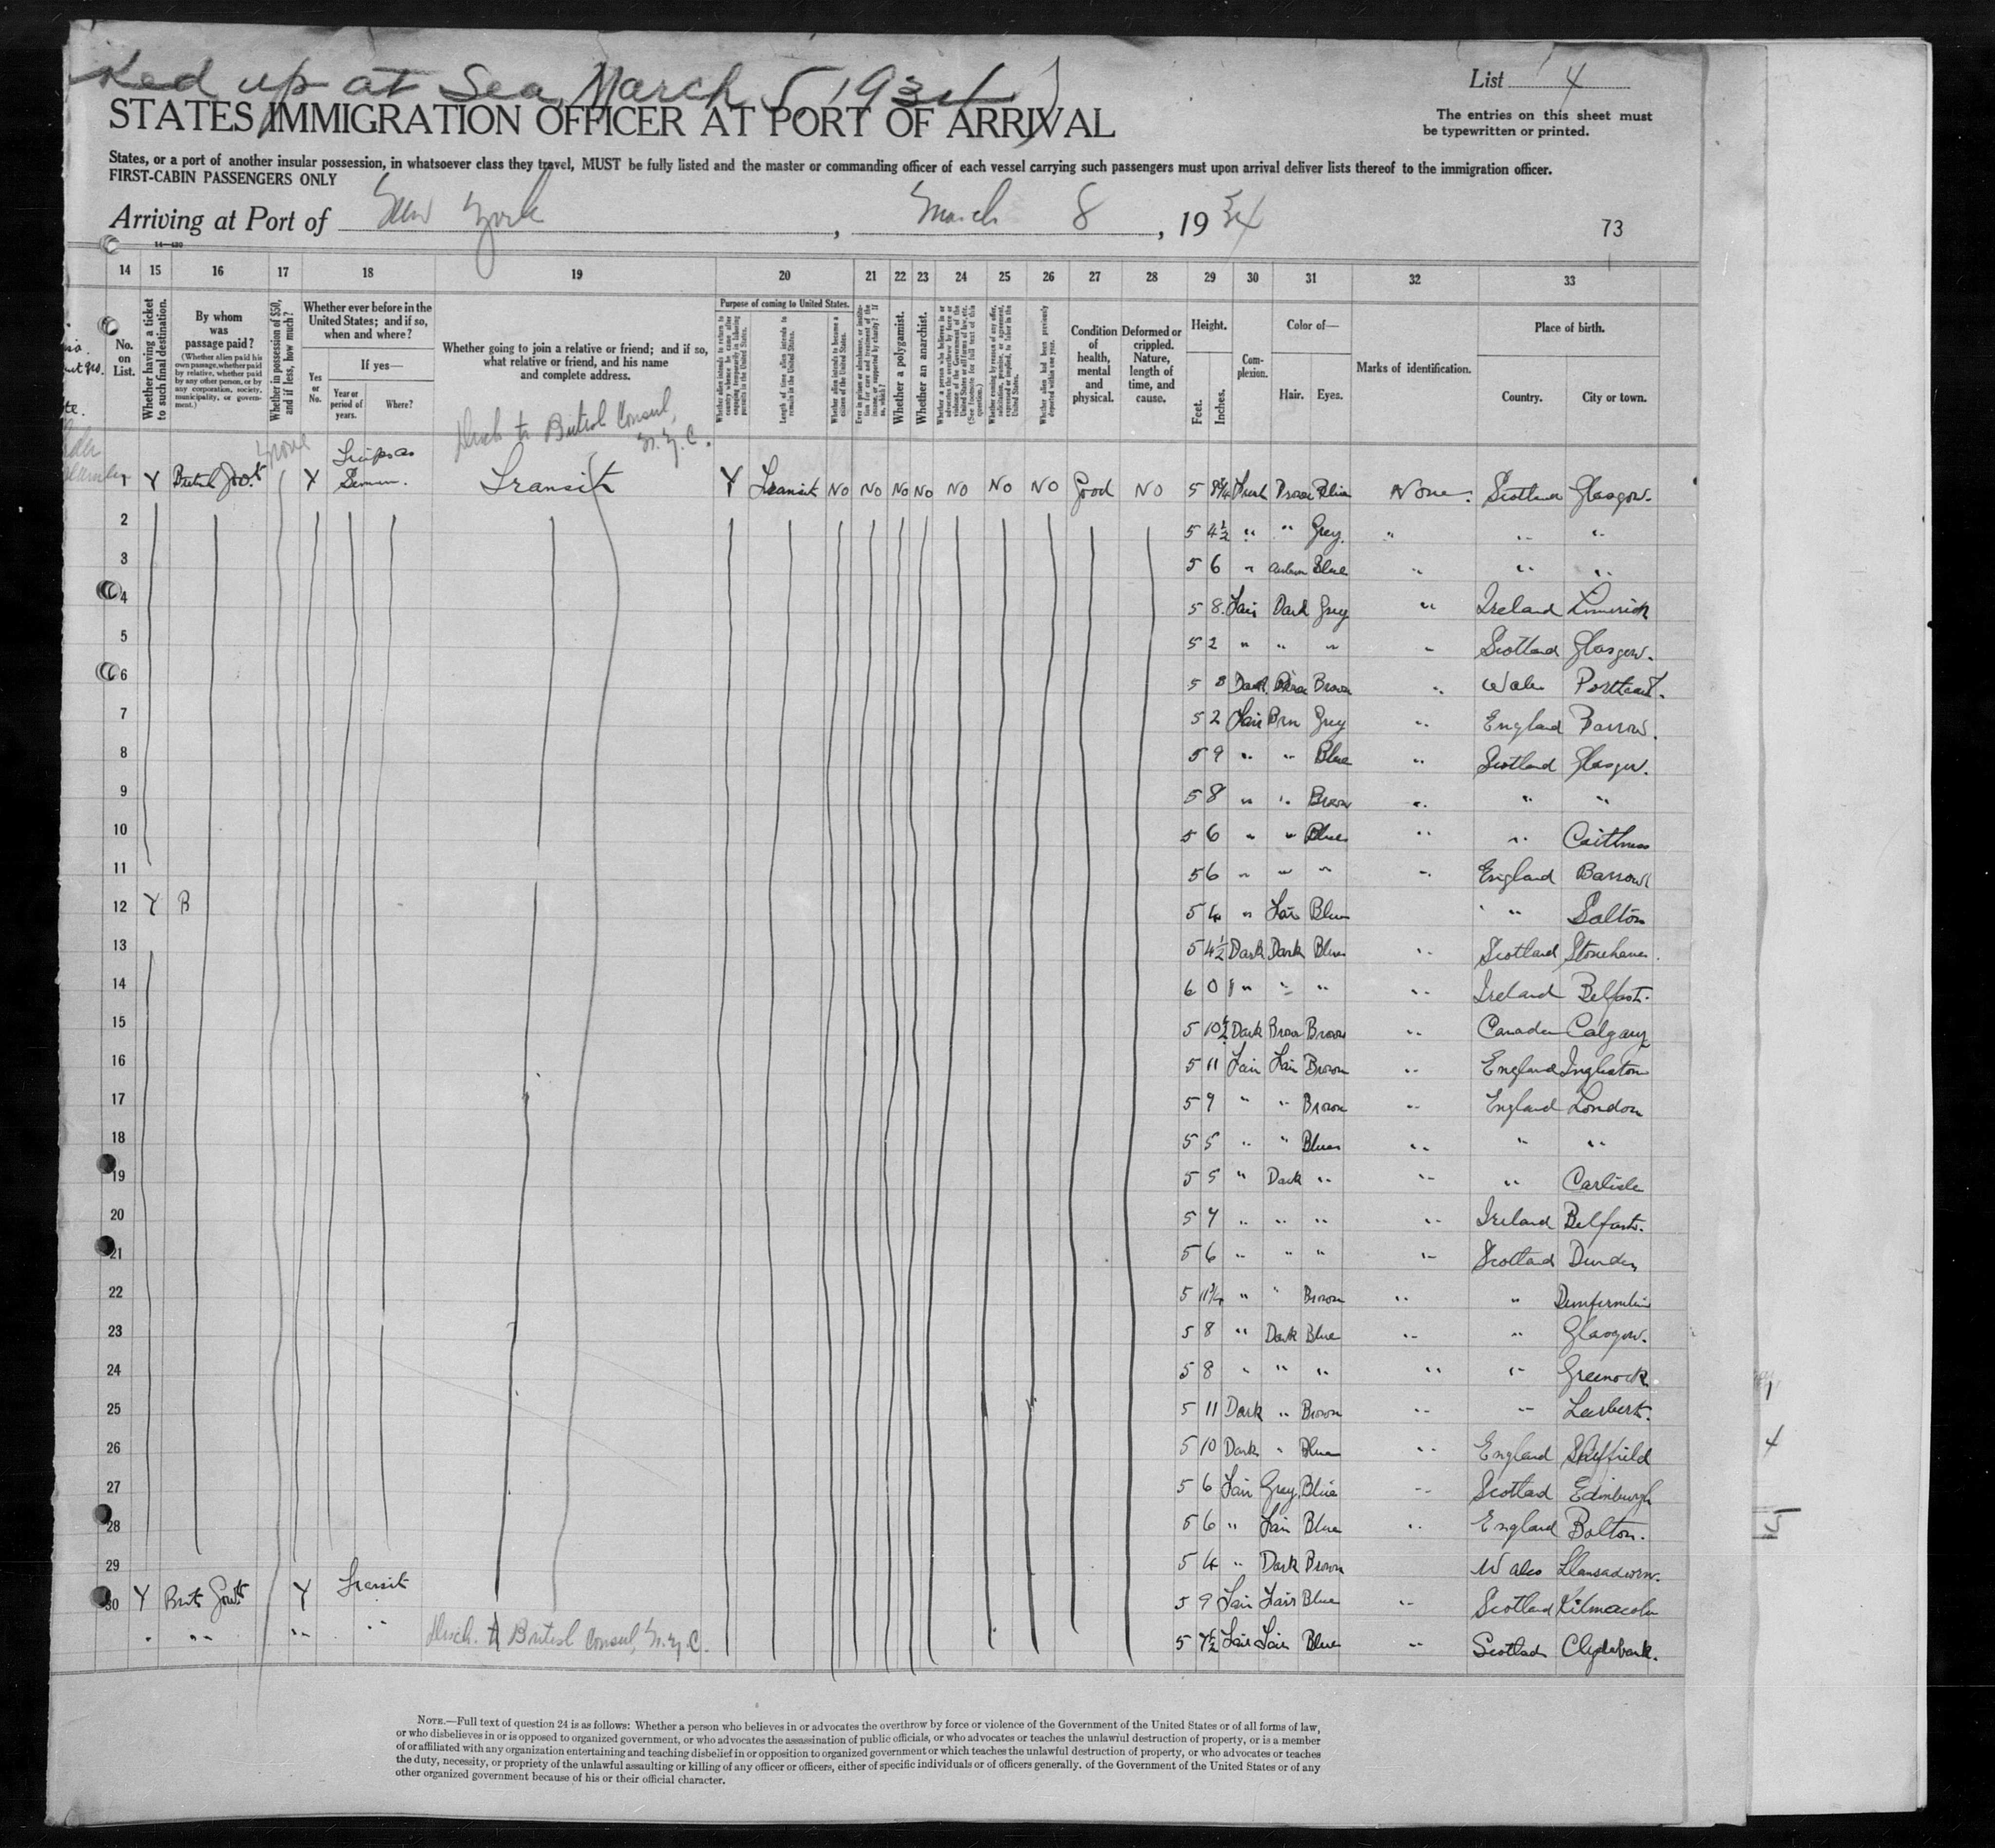 ked up at Sea March 5 1934)
List 4
STATES IMMIGRATION OFFICER AT PORT OF ARRIVAL
The entries on this sheet must
be typewritten or printed.
States, or a port of another insular possession, in whatsoever class they travel, MUST be fully listed and the master or commanding officer of each vessel carrying such passengers must upon arrival deliver lists thereof to the immigration officer.
FIRST-CABIN PASSENGERS ONLY
Arriving at Port of New York, March 8, 1934
73
14 15 16 17 18 19 20 21 22 23 24 25 26 27 28 29 30 31 32 33
No. on List.
Whether having a ticket to such final destination.
By whom was passage paid?
(Whether alien paid his own passage, whether paid by relative, whether paid by any other person, or by any corporation, society, municipality, or government.)
Whether in possession of $50, and if less, how much?
Whether ever before in the United States; and if so, when and where?
Yes or No.
If yes—
Year or period of years.
Where?
Whether going to join a relative or friend; and if so, what relative or friend, and his name and complete address.
Purpose of coming to United States.
Length of time alien intends to remain in the United States.
Whether alien intends to become a citizen of the United States.
Whether a polygamist.
Whether an anarchist.
Whether alien had been previously deported within one year.
Condition of health, mental and physical.
Deformed or crippled. Nature, length of time, and cause.
Height.
Feet. Inches.
Complexion.
Color of—
Hair. Eyes.
Marks of identification.
Place of birth.
Country. City or town.
Disch to British Consul, N.Y.C.
None
1 Y British Govt Y Transit Y Transit No No No No No No No Good No 5 None. Glasgow.
2 5 4½ " " Grey. " " "
3 5 6 " Auburn Blue " " "
4 5 8 Fair Dark Grey " Ireland Limerick
5 5 2 " " " " Scotland Glasgow.
6 5 8 Dark Brown "
7 5 2 Fair Brn Grey " England Barrow.
8 5 9 " " Blue " Scotland Glasgow.
9 5 8 " " Brown " " "
10 5 6 " " Blue " " Caithness
11 5 6 " " " " England Barrow
12 Y B 5 4 " Fair Blue "
13 5 4½ Dark Dark Blue " Scotland Stonehaven.
14 6 0 " " " " Ireland Belfast.
15 5 10½ Dark Brown Brown " Canada Calgary
16 5 11 Fair Fair Brown " England Ingleton
17 5 9 " " Brown " England London
18 5 5 " " Blue " " "
19 5 5 " Dark " " " Carlisle
20 5 7 " " " " Ireland Belfast.
21 5 6 " " " " Scotland Dundee
22 5 " " Brown " " Dunfermline
23 5 8 " Dark Blue " " Glasgow.
24 5 8 " " " " " Greenock
25 5 11 Dark " Brown " " Larbert.
26 5 10 Dark " Blue " England Sheffield
27 5 6 Fair Grey Blue " Scotland Edinburgh
28 5 6 " Fair Blue " England Bolton.
29 5 4 " Dark Brown Wales Llansadwrn.
30 Y Brit Govt Y Transit 5 9 Fair Fair Blue " Scotland Kilmacolm
" " " " Disch. to British Consul, N.Y.C. 5 7½ Fair Fair Blue " Scotland Clydebank.
NOTE.—Full text of question 24 is as follows: Whether a person who believes in or advocates the overthrow by force or violence of the Government of the United States or of all forms of law,
or who disbelieves in or is opposed to organized government, or who advocates the assassination of public officials, or who advocates or teaches the unlawful destruction of property, or is a member
of or affiliated with any organization entertaining and teaching disbelief in or opposition to organized government or which teaches the unlawful destruction of property, or who advocates or teaches
the duty, necessity, or propriety of the unlawful assaulting or killing of any officer or officers, either of specific individuals or of officers generally, of the Government of the United States or of any
other organized government because of his or their official character.